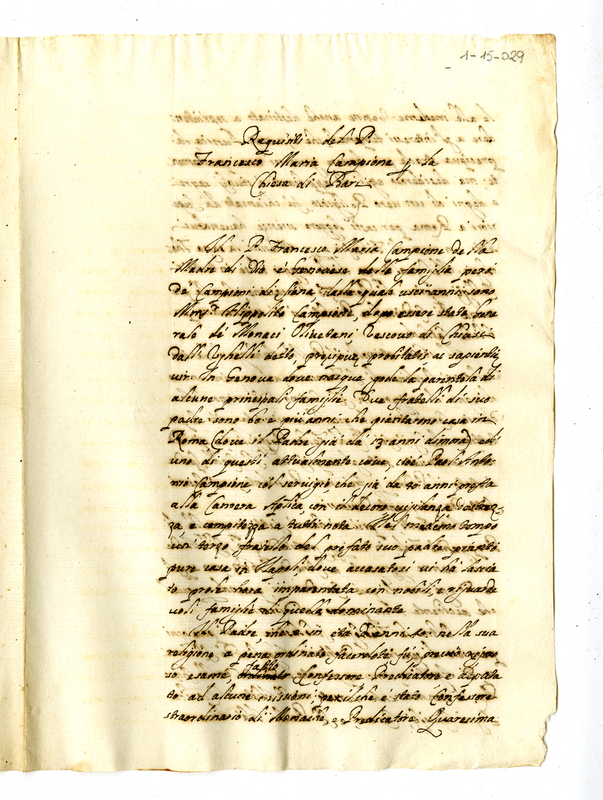 1-15-029
Requisiti del P.
Francesco Maria Campione per la
Chiesa di Bari
Il P. Francesco Maria Campione della
Madre di Dio è Genovese della famiglia però
de Campioni di Siena dalla quale usci anni sono
Mons.r Hippolito Campione, dopo essere stato Gene
rale de Monaci Olivetani, Vescovo di Chiusi
dall' Ughelli detto, precipuae probitatis ac sapientiae
vir. In Genova dove nacque gode la parentela di
alcune principali famiglie. Due fratelli di suo
padre sono 60 e più anni che piantarono casa in
Roma (dove il Padre già da 13 anni dimora) et
uno di questi attualmente vive, cioè Paol' Anto
nio Campione, col servigio, che già da 20 anni presta
alla Camera Aplica con il decoro vigilanza
za e compitezza a tutti nota. Nel medemo tempo
un terzo fratello del prefato suo padre piantò
pure casa in Napoli, dove accasatosi vi ha lascia
to prole hora imparentata con nobili, e riguarde
voli famiglie di quella dominante
Il Padre, che è in età d'anni nella sua
religione a pena ordinato sacerdote fù, previo rigoro
so esame fatto Confessore Predicatore e deputa
to ad alcune missioni è stato Confessore
straordinario di Monache, e Predicatore Quaresima